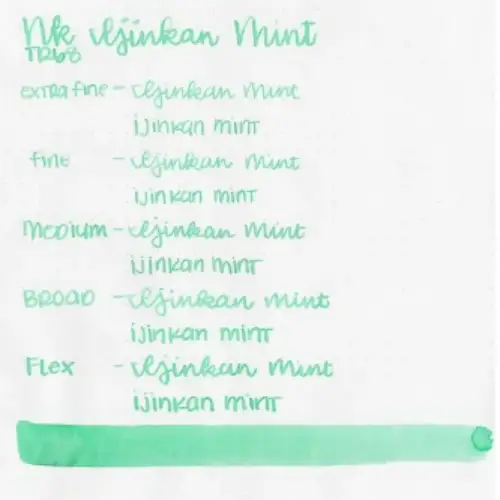 NK Ijinkan Mint
TR68
extra fine - Ijinkan Mint
ijinkan mint
fine - Ijinkan Mint
ijinkan mint
Medium - Ijinkan Mint
ijinkan mint
Broad - Ijinkan Mint
ijinkan mint
Flex - Ijinkan Mint
ijinkan mint